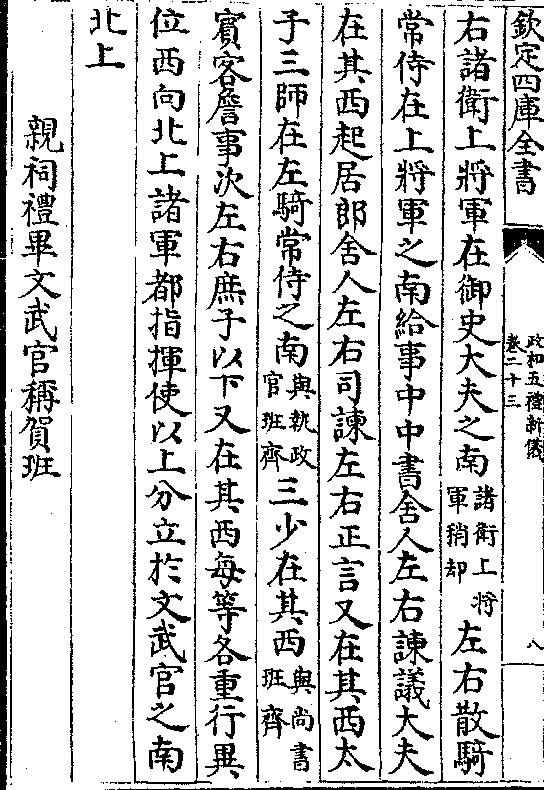 欽定四庫全書
政和五禮新儀
卷二十三
八
右諸衛上將軍在御史大夫之南諸衛上將軍稍却左右散騎
常侍在上將軍之南給事中中書舍人左右諫議大夫
在其西起居郎舍人左右司諫左右正言又在其西太
子三師在左騎常侍之南與執政官班齊三少在其西與尚書班齊
賓客詹事次左右庶子以下又在其西每等各重行異
位西向北上諸軍都指揮使以上分立於文武官之南
北上
親祠禮畢文武官稱賀班